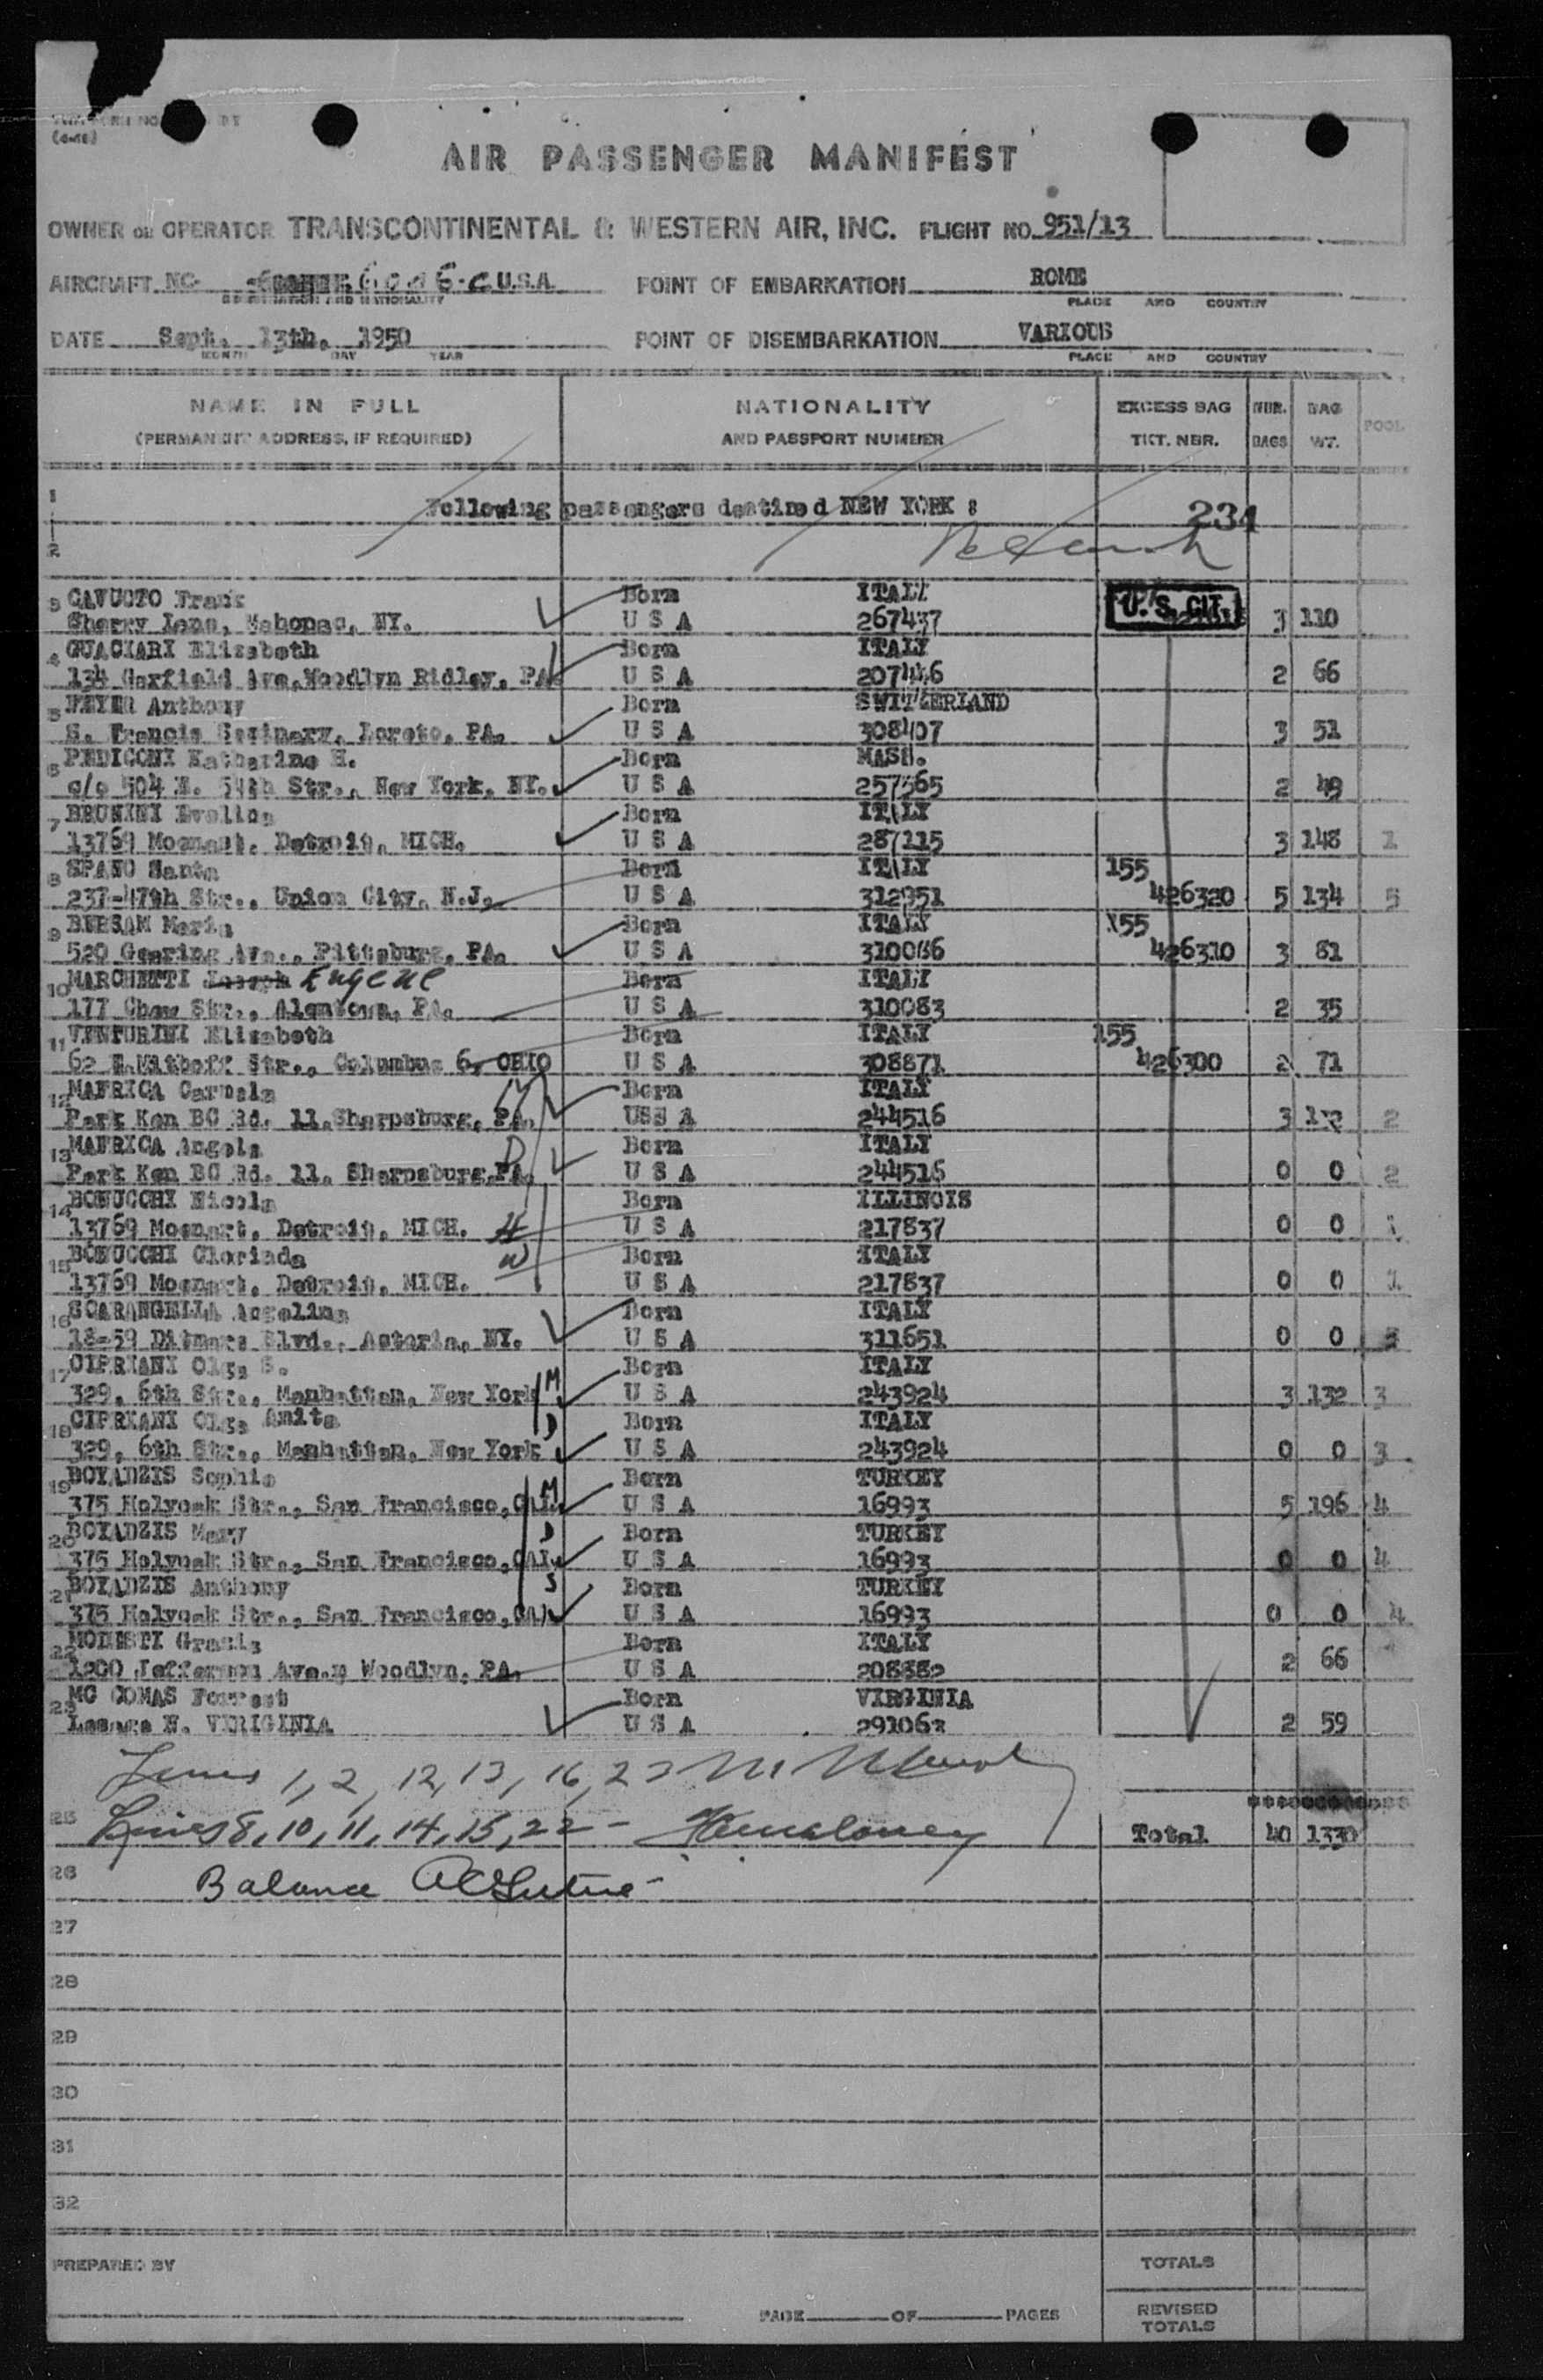 (6-48)
AIR PASSENGER MANIFEST
OWNER OR OPERATOR TRANSCONTINENTAL & WESTERN AIR, INC. FLIGHT NO. 951/13
AIRCRAFT NC- 6026-C U.S.A. POINT OF EMBARKATION ROME
REGISTRATION AND NATIONALITY PLACE AND COUNTRY
DATE Sept. 13th, 1950 POINT OF DISEMBARKATION VARIOUS
MONTH DAY YEAR PLACE AND COUNTRY
NAME IN FULL NATIONALITY EXCESS BAG NBR. BAG POOL
(PERMANENT ADDRESS, IF REQUIRED) AND PASSPORT NUMBER TKT. NBR. BAGS WT.
1 Following passengers destined NEW YORK : 234
2
3 CAVUOTO Frank Born ITALY U.S. CIT.
Cherry Lane, Mahopac, NY. U S A 267437 3 110
4 GUACIARI Elisabeth Born ITALY
134 Garfield Ave.Woodlyn Ridley, PA U S A 207446 2 66
5 Anthony Born SWITZERLAND
S. Francis Seminary, Loreto, PA. U S A 308407 3 51
6 PEDICONI Katherine H. Born MASS.
c/o 504 E. 54th Str., New York, NY. U S A 257565 2 49
7 BRUNINI Born ITALY
13769 Moenart, Detroit, MICH. U S A 287115 3 148 1
8 SPANO Santa Born ITALY 155
237-47th Str., Union City, N.J. U S A 312951 426320 5 134 5
9 BERSAM Maria Born ITALY 155
520 Gearing Ave., Pittsburg, PA. U S A 310086 426310 3 81
10 MARCHETTI Joseph Eugene Born ITALY
177 Chew Str., Alentown, PA. U S A 310083 2 35
11 VENTURINI Elisabeth Born ITALY 155
62 E.Mithoff Str., Columbus 6, OHIO U S A 308871 426300 2 71
12 MAFRICA Carmela M Born ITALY
Park Ken BC Rd. 11,Sharpsburg, PA. USS A 244516 3 2
13 MAFRICA Angela D Born ITALY
Park Ken BC Rd. 11, Sharpsburg,PA. U S A 244516 0 0 2
14 BONUCCHI Nicola Born ILLINOIS
13769 Moenart, Detroit, MICH. H U S A 217837 0 0 1
15 BONUCCHI Clorinda W Born ITALY
13769 Moenart, Detroit, MICH. U S A 217837 0 0 1
16 SCARANGELLA Angelina Born ITALY
18-59 Ditmars Blvd., Astoria, NY. U S A 311651 0 0 5
17 CIPRIANI Olga S. Born ITALY
329, 6th Str., Manhattan, New York M U S A 243924 3 132 3
18 CIPRIANI Olga Anita D Born ITALY
329, 6th Str., Manhattan, New York U S A 243924 0 0 3
19 BOYADZIS Sophie Born TURKEY
375 Holyoak Str., San Francisco,CAL. M U S A 16993 5 196 4
20 BOYADZIS Mary D Born TURKEY
375 Holyoak Str., San Francisco,CAL. U S A 16993 0 0 4
21 BOYADZIS Anthony S Born TURKEY
375 Holyoak Str., San Francisco,CAL U S A 16993 0 0 4
22 MODESTI Born ITALY
1200 Jefferson Ave., Woodlyn, PA. U S A 208882 2 66
23 MC COMAS Forrest Born VIRGINIA
Lesage N. VIRIGINIA U S A 291063 2 59
Lines 1, 2, 12, 13, 16, 23
25 Lines 8, 10, 11, 14, 15, 22 - Total 40 1330
26 Balance
27
28
29
30
31
32
PREPARED BY TOTALS
PAGE OF PAGES REVISED
TOTALS